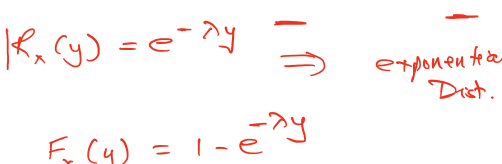 |R_x(y) = e^{-λy} ⇒ exponentia
Dist.
F_x(y) = 1 - e^{-λy}